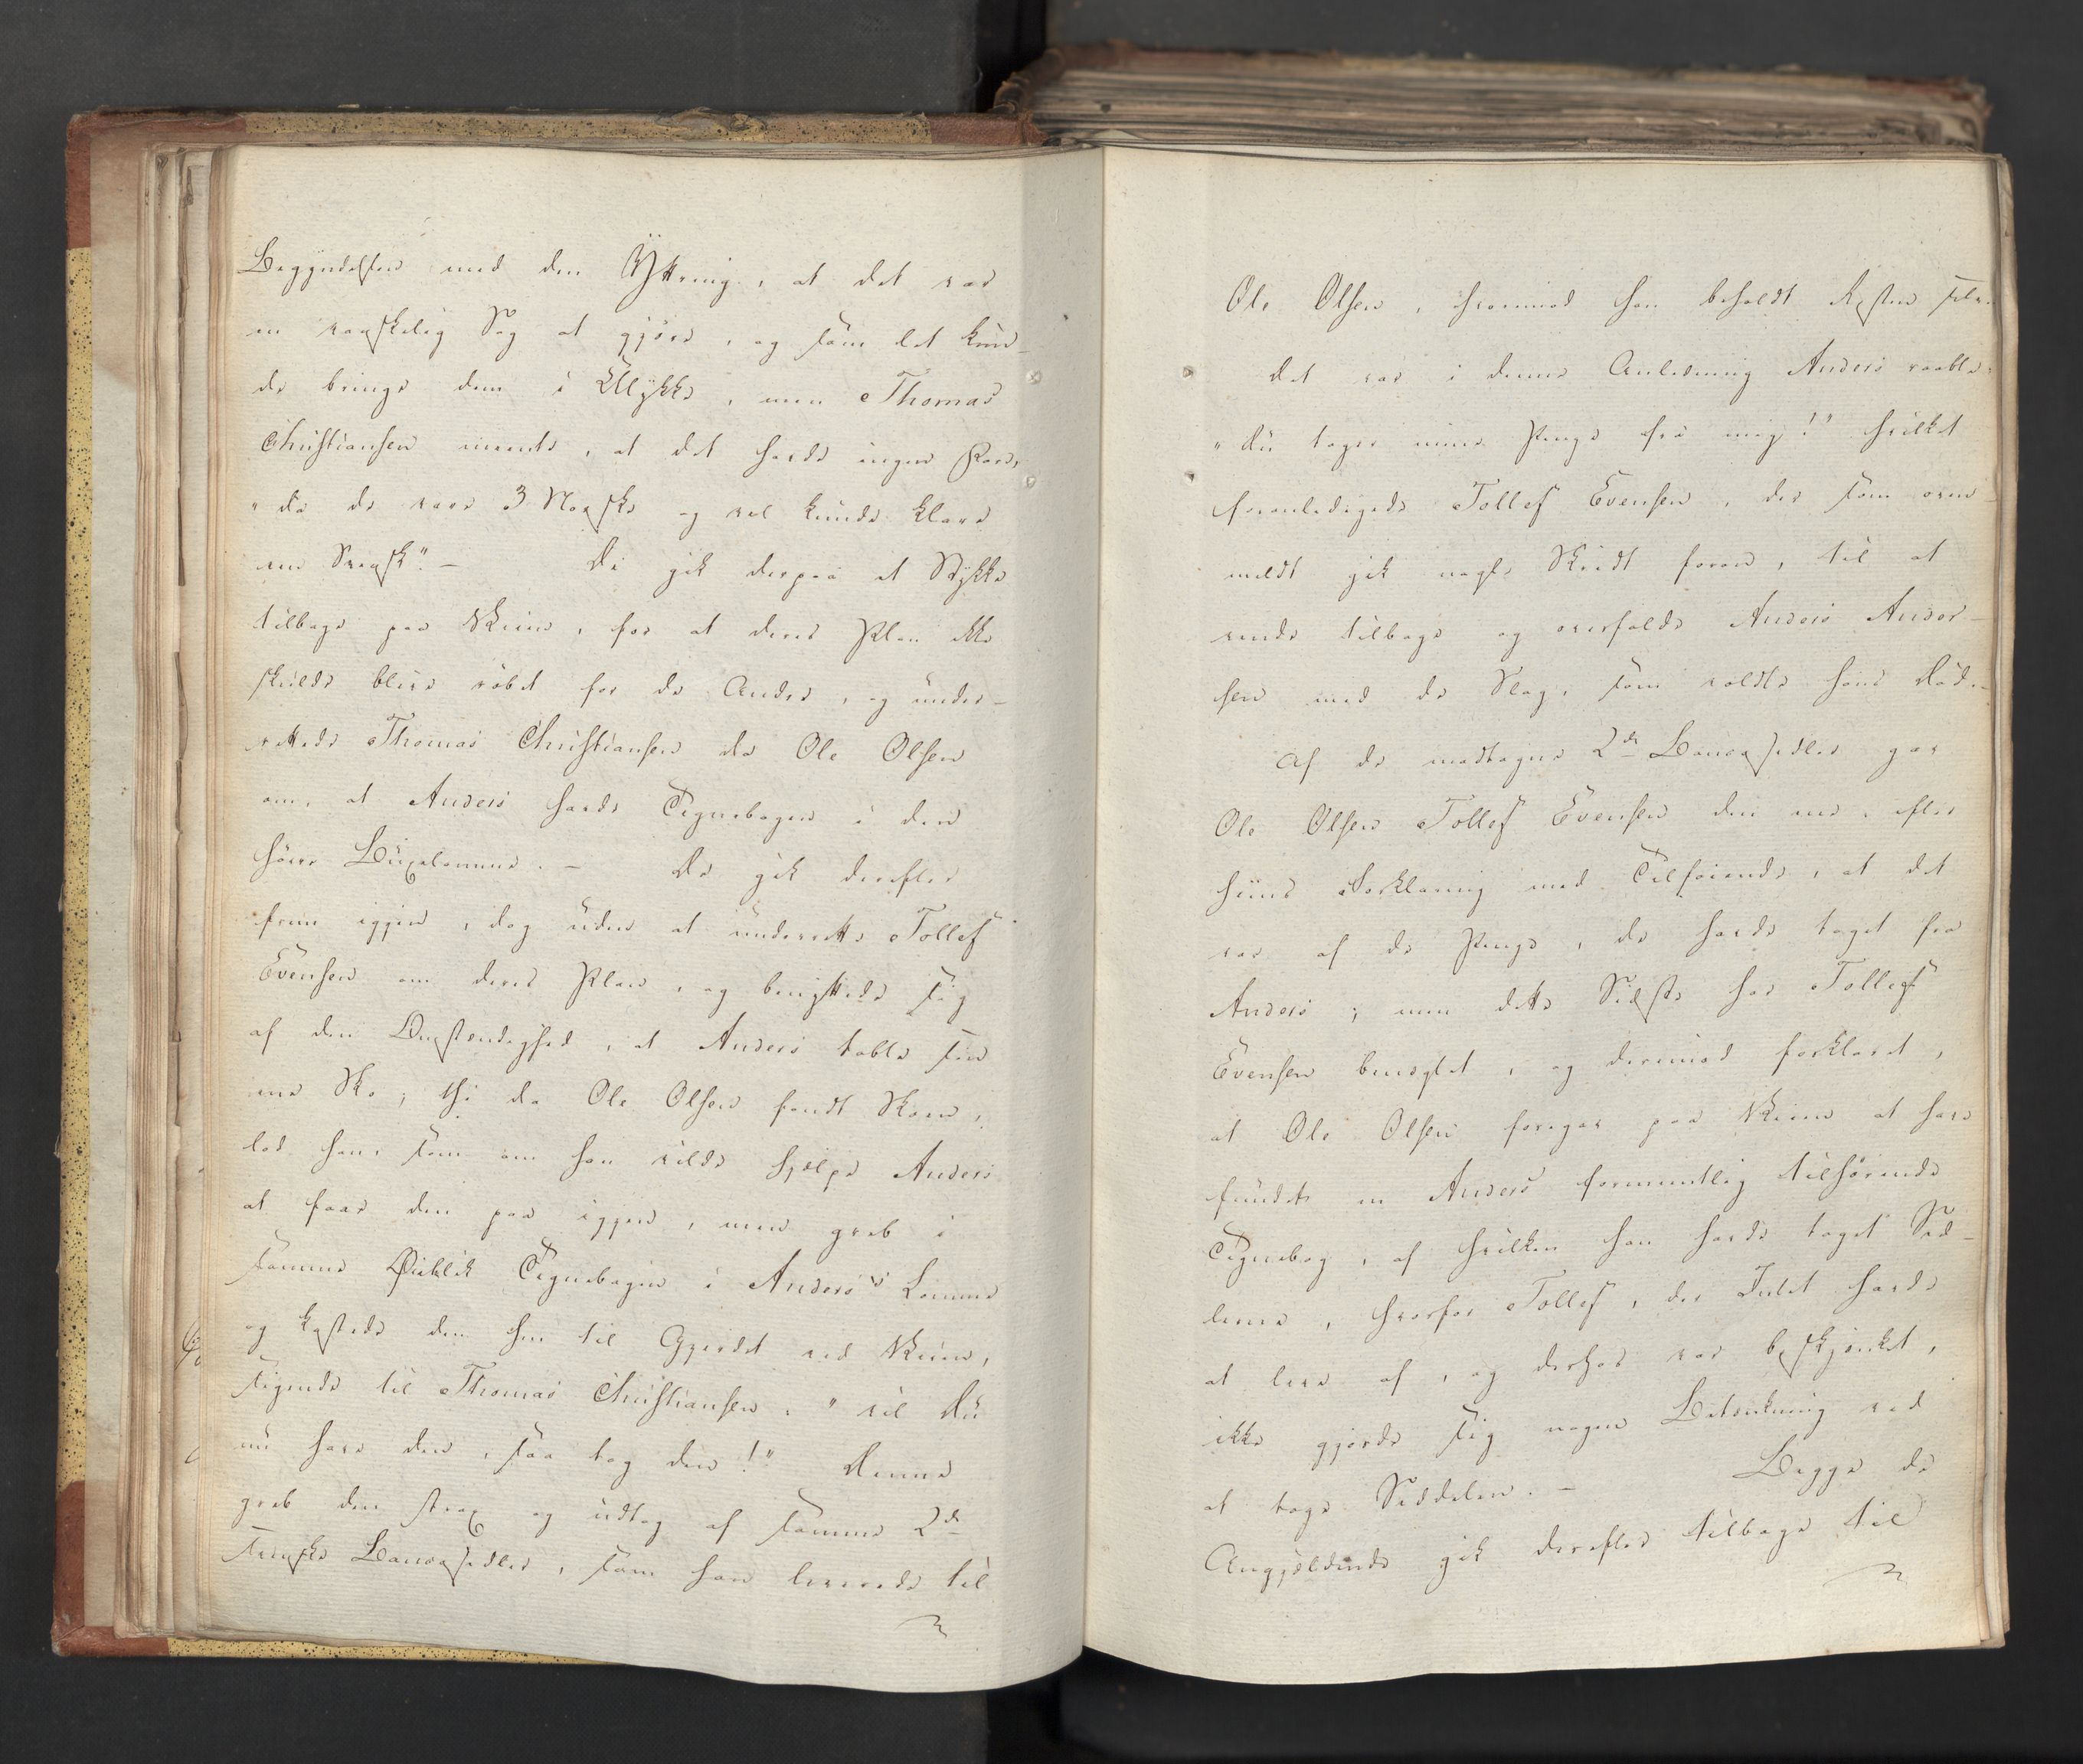 Begyndelsen med den Yttring, at det var
en vanskelig Sag at gjøre, og som det kun-
de bringe dem i Ulykke, men Thomas
Christiansen meente, at det havde ingen Fare,
"da de vare 3 Norske og vel kunde klare
een Svensk". — De gik derpaa et Stykke
tilbage paa Veien, for at deres Plan ikke
skulde blive røbet for de Andre, og under-
rettede Thomas Christiansen da Ole Olsen
om, at Anders havde Tegnebogen i den
høire Buxelomme. — De gik derefter
frem igjen, dog uden at underrette Tollef
Evensen om deres Plan, og benyttede sig
af den Omstendighed, at Anders tabte sin
ene Sko; thi da Ole Olsen fandt Skoen,
lod han, som om han vilde hjelpe Anders
at faae den paa igjen, men greb i
samme Øieblik Tegnebogen i Anders's Lomme
og kastede den hen til Gjerdet ved Veien,
sigende til Thomas Christiansen: "vil Du
nu have den, saa tag den!" Denne
greb den strax og udtog af samme 2de
svenske Bancosedler, som han leverede til
Ole Olsen, hvorimod han beholdt Resten selv.
Det var i denne Anledning Anders raabte:
"Du tager mine Penge fra mig!" hvilket
foranledigede Tollef Evensen, der som oven-
meldt gik nogle Skridt foran, til at
vende tilbage og overfalde Anders Ander-
sen med de Slag, som voldte hans Død. —
Af de modtagne 2de Bancosedler gav
Ole Olsen Tollef Evensen den ene, efter
hiins Forklaring med Tilføiende, at det
var af de Penge, de havde taget fra
Anders; men dette Sidste har Tollef
Evensen benegtet, og derimod forklaret,
at Ole Olsen foregav paa Veien at have
fundet en Anders formeentlig tilhørende
Tegnebog, af hvilken han havde taget Sed-
lerne, hvorfor Tollef, der Intet havde
at leve af, og derhos var beskjenket,
ikke gjorde sig nogen Betenkning ved
at tage Seddelen. — Begge de
Angjeldende gik derefter tilbage til